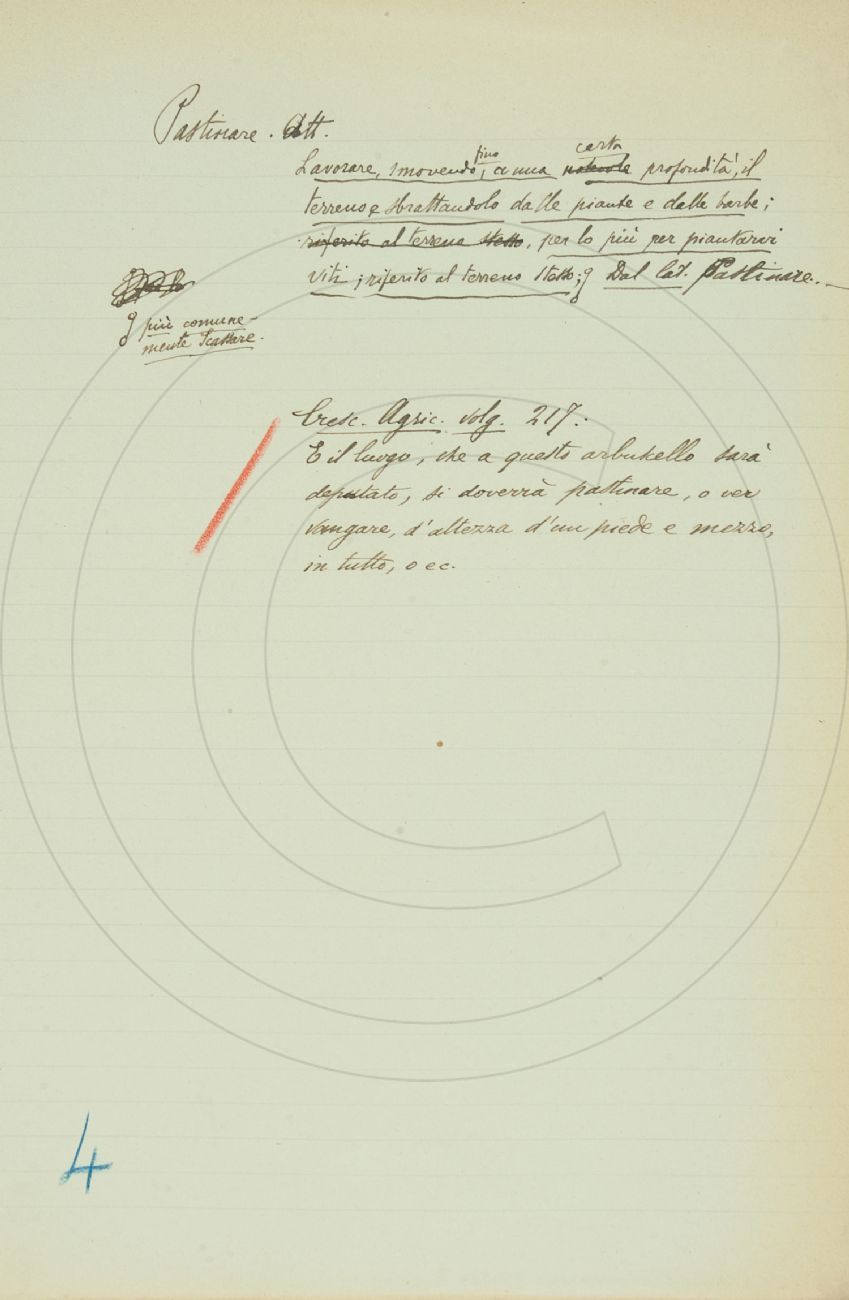 Pastinare. Att.
Lavorare, smovendo, fino a una certa notevole profondità, il
terreno e sbrattandolo dalle piante e dalle barbe;
riferito al terreno stesso, per lo più per piantarvi
viti; riferito al terreno stesso; Dal lat. Pastinare. —
più comune-
mente Scassare.
Cresc. Agric. volg. 217:
E il luogo, che a questo arbuscello sarà
deputato, si doverrà pastinare, o ver
vangare, d'altezza d'un piede e mezzo,
in tutto, o ec.
4